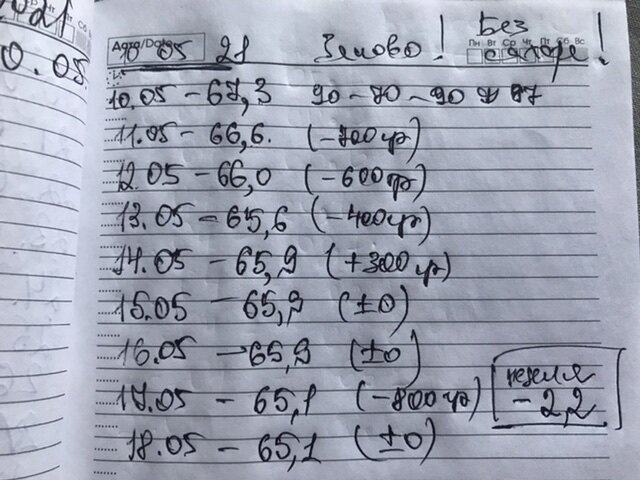 10.05.
Дата/Date 10 05 21 Заново! Без
Пн Вт Ср Чт Пт Сб Вс
10.05 – 67,3 90–70–90
11.05 – 66,6. (–700гр)
12.05 – 66,0 (–600гр)
13.05 – 65,6 (–400гр)
14.05 – 65,9 (+300гр)
15.05 – 65,9 (±0)
16.05 – 65,9 (±0)
17.05 – 65,1 (–800гр) неделя
– 2,2
18.05 – 65,1 (±0)